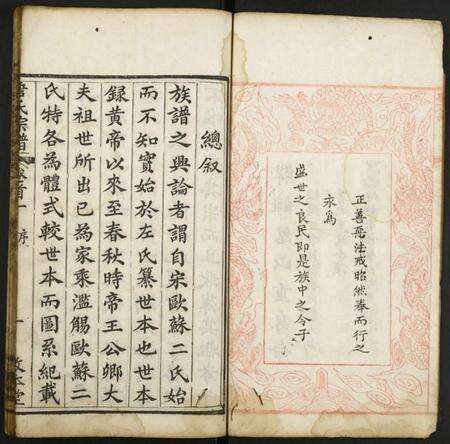 正善惡法戒昭然奉而行之
永為
盛世之良民即是族中之令子
總叙
族譜之興論者謂自宋歐蘇二氏始
而不知實始於左氏纂世本也世本
録黄帝以來至春秋時帝王公卿大
夫祖世所出已為家乘濫觴歐蘇二
氏特各為體式較世本而圖系紀載
氏宗譜
卷首
序
一
敦本堂